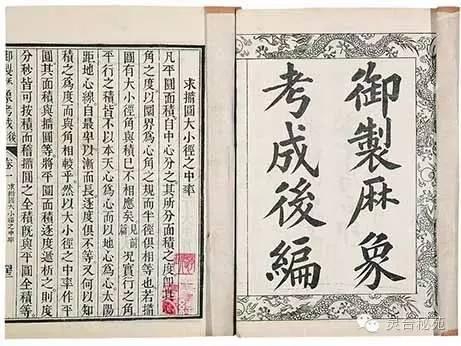 御製厤象
考成後編
求橢圓大小徑之中率
凡平圓面積自中心分之其所分面積之度即其心
角之度以圜界為心角之規而半徑俱相等也若橢
圓有大小徑角與積已不相應矣見前篇况實行之角
平行之積皆不以本天心為心而以地心為心太陽
距地心線自最卑以漸而長逐度俱不等又何以知
積之為度而與角相較乎然以大小徑之中率作平
圓其面積與橢圓等將平圓面積逐度遞析之則度
分秒皆可按積而稽橢圓之全積既與平圓全積等
御製厤象考成後編 卷一 求橢圓大小徑之中率
灵台秘苑